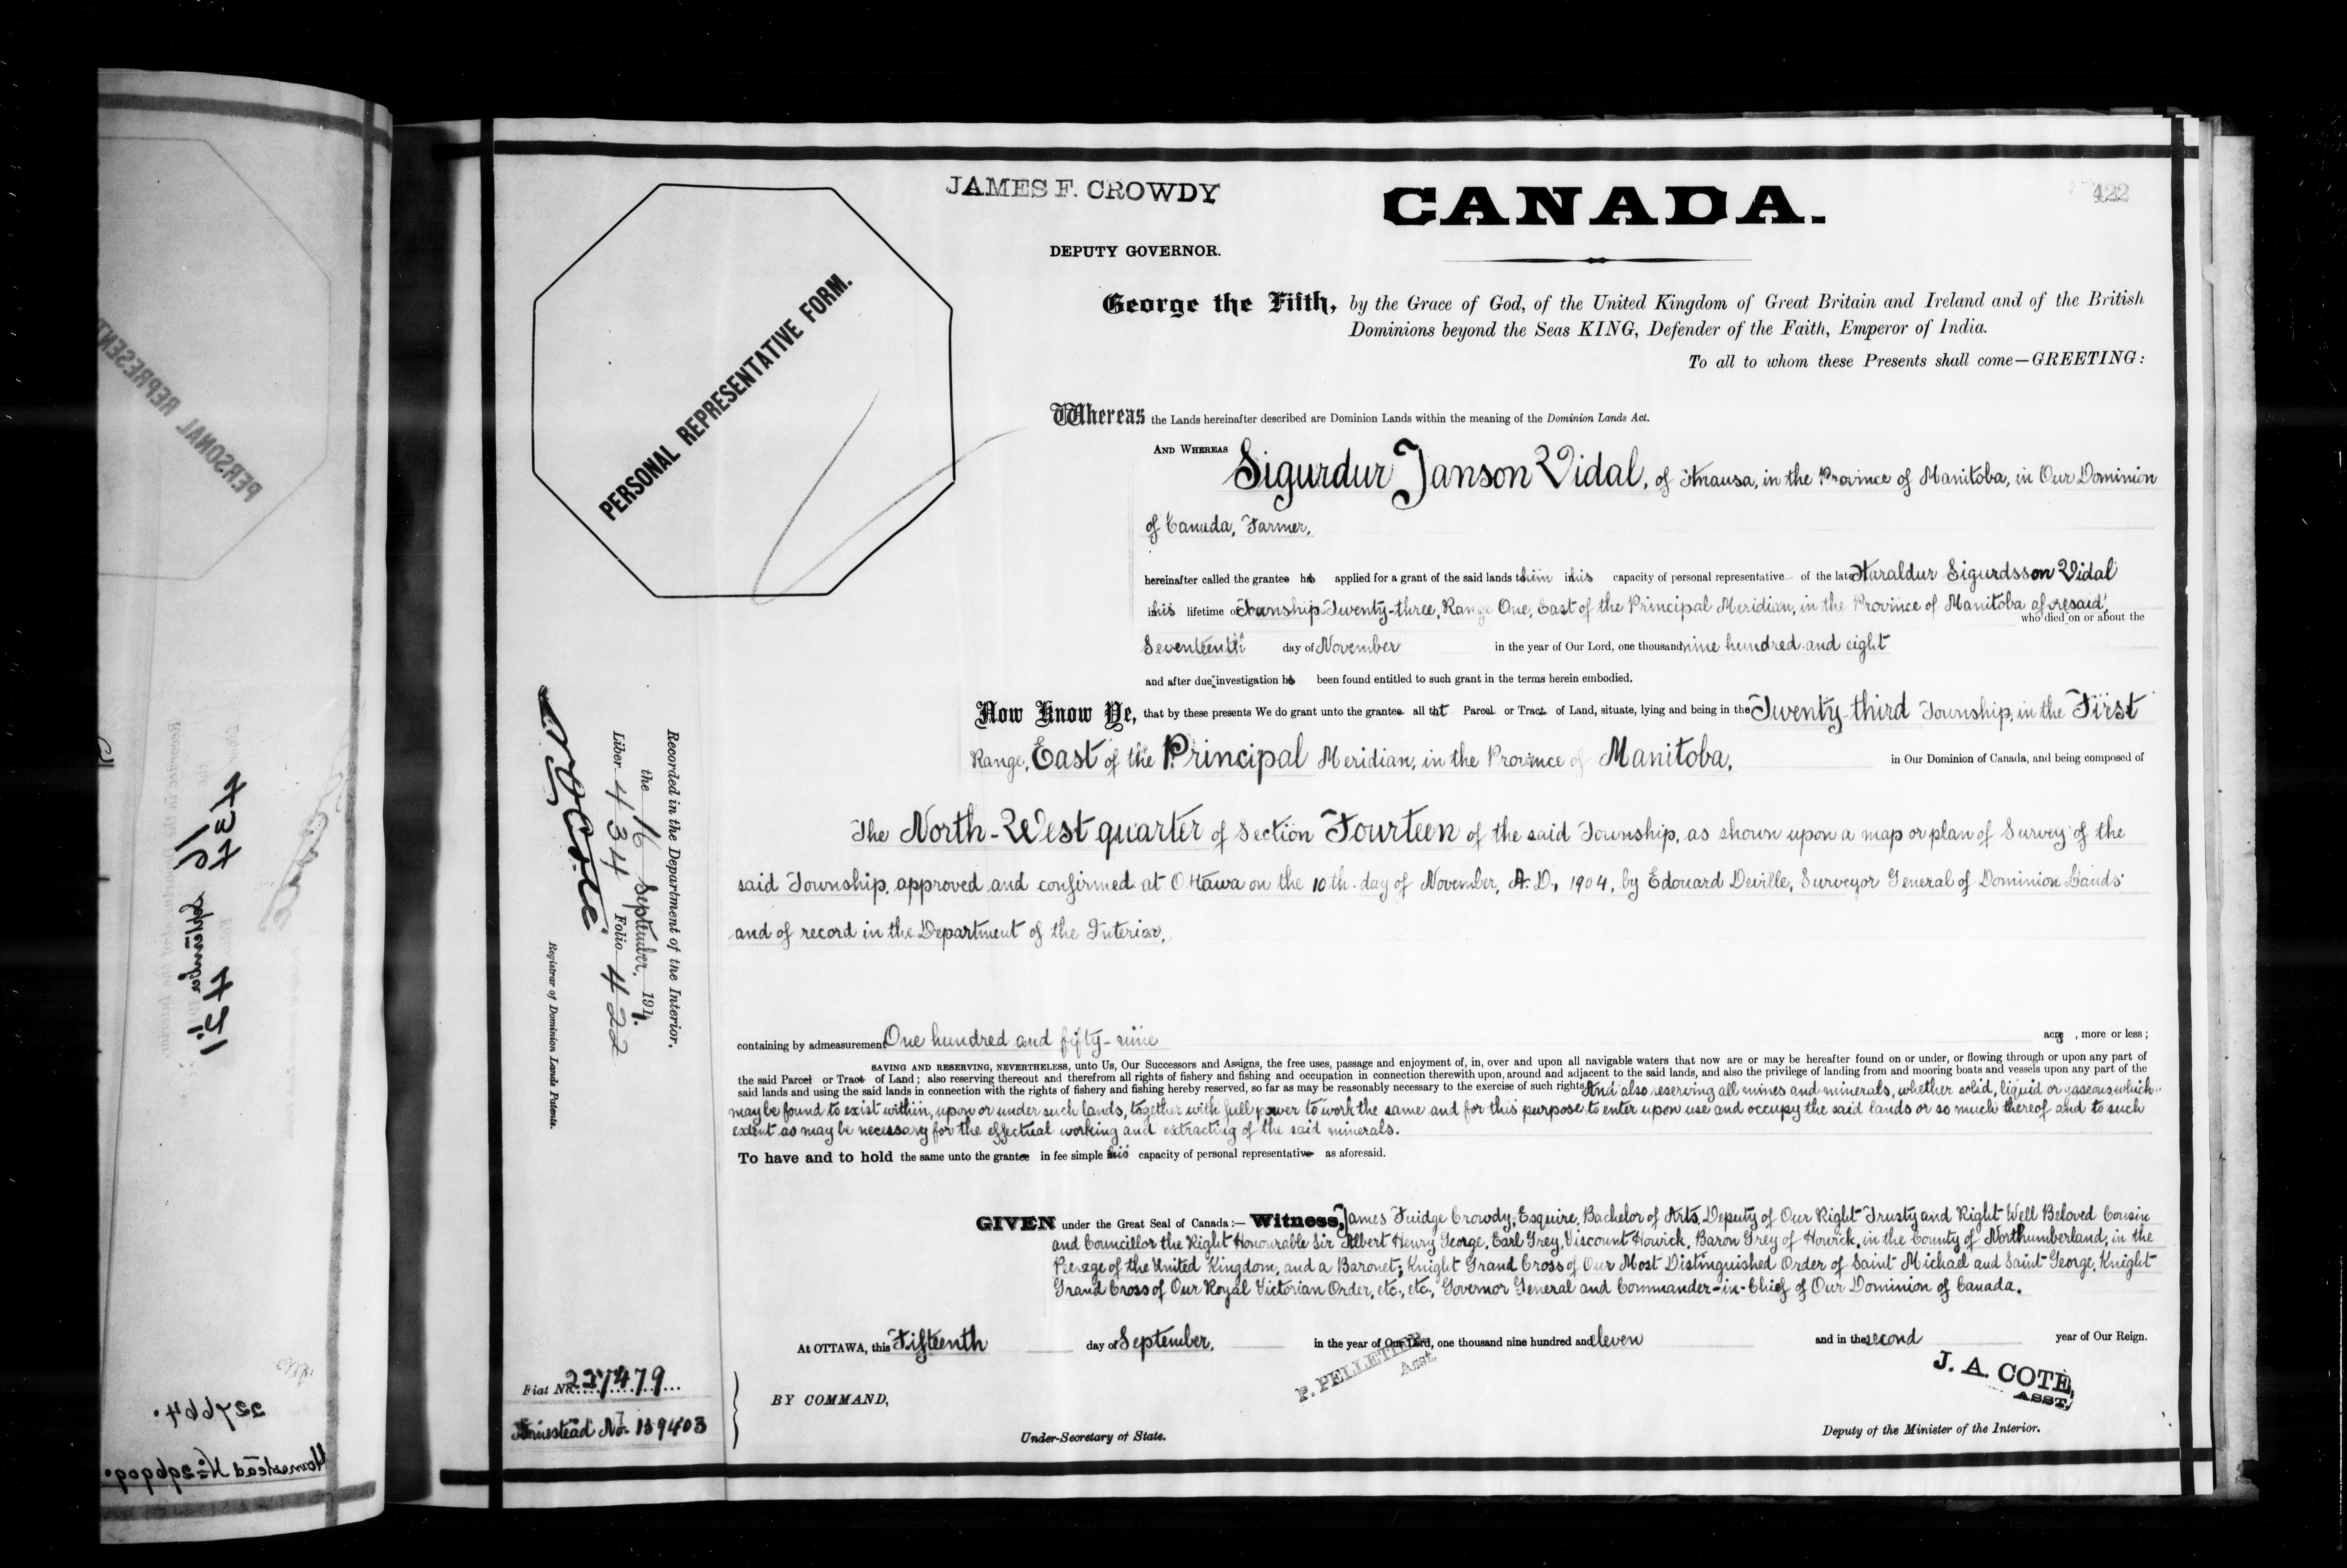 JAMES F. CROWDY
DEPUTY GOVERNOR.
CANADA.
422
PERSONAL REPRESENTATIVE FORM.
George the Fifth, by the Grace of God, of the United Kingdom of Great Britain and Ireland and of the British
Dominions beyond the Seas KING, Defender of the Faith, Emperor of India.
To all to whom these Presents shall come—GREETING:
Whereas the Lands hereinafter described are Dominion Lands within the meaning of the Dominion Lands Act.
AND WHEREAS Sigurdur Janson Vidal, of Hnausa, in the Province of Manitoba, in Our Dominion
of Canada, Farmer,
hereinafter called the grantee has applied for a grant of the said lands to him in his capacity of personal representative of the late Haraldur Sigurdsson Vidal
in his lifetime of Township Twenty-three, Range One, East of the Principal Meridian, in the Province of Manitoba aforesaid,
who died on or about the
Seventeenth day of November in the year of Our Lord, one thousand nine hundred and eight
and after due investigation has been found entitled to such grant in the terms herein embodied.
Now Know Ye, that by these presents We do grant unto the grantee all that Parcel or Tract of Land, situate, lying and being in the Twenty-third Township, in the First
Range, East of the Principal Meridian, in the Province of Manitoba, in Our Dominion of Canada, and being composed of
The North-West quarter of Section Fourteen of the said Township, as shown upon a map or plan of Survey of the
said Township, approved and confirmed at Ottawa on the 10th day of November, A.D., 1904, by Edouard Deville, Surveyor General of Dominion Lands
and of record in the Department of the Interior.
containing by admeasurement One hundred and fifty-nine acres, more or less;
SAVING AND RESERVING, NEVERTHELESS, unto Us, Our Successors and Assigns, the free uses, passage and enjoyment of, in, over and upon all navigable waters that now are or may be hereafter found on or under, or flowing through or upon any part of
the said Parcel or Tract of Land; also reserving thereout and therefrom all rights of fishery and fishing and occupation in connection therewith upon, around and adjacent to the said lands, and also the privilege of landing from and mooring boats and vessels upon any part of the
said lands and using the said lands in connection with the rights of fishery and fishing hereby reserved, so far as may be reasonably necessary to the exercise of such rights And also reserving all mines and minerals, whether solid, liquid or gaseous which
may be found to exist within, upon or under such lands, together with full power to work the same and for this purpose to enter upon use and occupy the said lands or so much thereof and to such
extent as may be necessary for the effectual working and extracting of the said minerals.
To have and to hold the same unto the grantee in fee simple in his capacity of personal representative as aforesaid.
GIVEN under the Great Seal of Canada:— Witness, James Fuidge Crowdy, Esquire, Bachelor of Arts, Deputy of Our Right Trusty and Right Well Beloved Cousin
and Councillor the Right Honourable Sir Albert Henry George, Earl Grey, Viscount Howick, Baron Grey of Howick, in the County of Northumberland, in the
Peerage of the United Kingdom, and a Baronet; Knight Grand Cross of Our Most Distinguished Order of Saint Michael and Saint George, Knight
Grand Cross of Our Royal Victorian Order, etc., etc., Governor General and Commander-in-Chief of Our Dominion of Canada.
At OTTAWA, this Fifteenth day of September, in the year of Our Lord, one thousand nine hundred and eleven and in the second year of Our Reign.
BY COMMAND,
P. PELLETIER
Asst.
J. A. COTE,
ASST.
Under-Secretary of State.
Deputy of the Minister of the Interior.
Recorded in the Department of the Interior.
the 16 September, 1911.
Liber 434 Folio 422
Registrar of Dominion Lands Patents.
Fiat No. 227479
Homestead No. 139403
PERSONAL REPRESENT
434
16 September
421
227664.
Homestead No 296909.